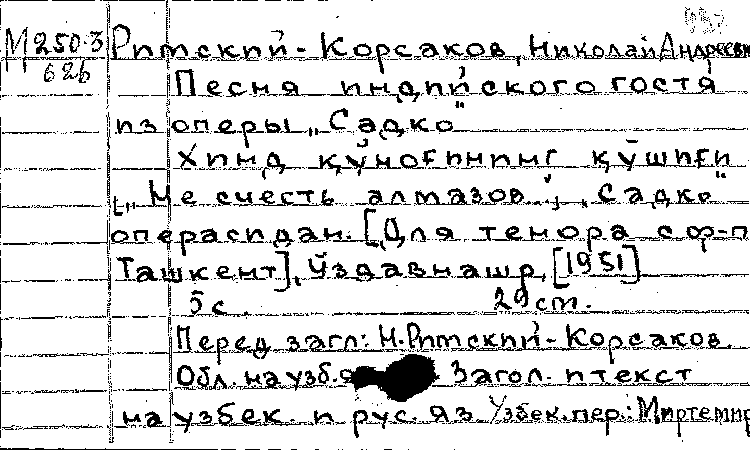 М 250.3
626
Римский-Корсаков, Николай Андрееви
Песня индийского гостя
из оперы „Садко"
Хинд қўноғининг қўшиғи
[„Не счесть алмазов...", „Садко"
операсидан. [Для тенора с ф-п
Ташкент], Ўздавнашр, [1951]
5 с. 29 cm.
Перед загл: Н. Римский-Корсаков.
Обл. на узб. Загол. и текст
на узбек. и рус. яз Узбек. пер.: Миртемир